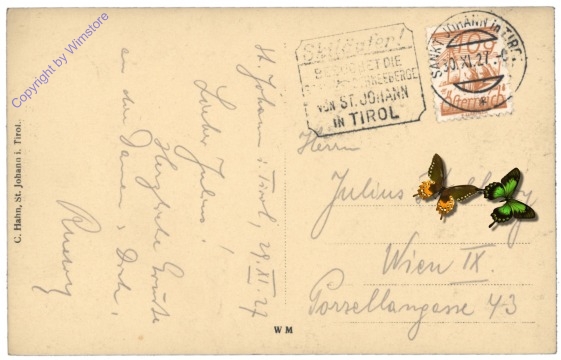 Copyright by Wimstore
C. Hahn, St. Johann i. Tirol.
St. Johann i. Tirol, 29. XI. 27
Lieber Julius!
Herzliche Grüsse
an die Damen u. Dich,
Skiläufer!
BESUCHET DIE
SCHNEEBERGE
VON ST. JOHANN
IN TIROL
SANKT JOHANN in TIROL
30.XI.27
10g
Österreich
Herrn
Julius
Wien IX.
Porzellangasse 43
WM